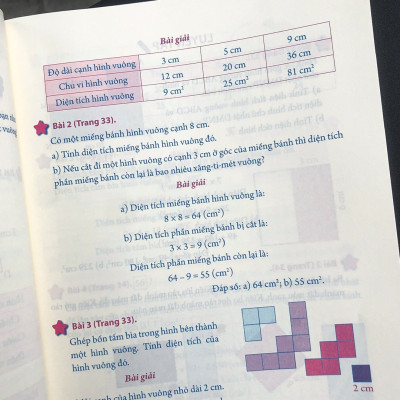 Bài giải
Độ dài cạnh hình vuông 3 cm 5 cm 9 cm
Chu vi hình vuông 12 cm 20 cm 36 cm
Diện tích hình vuông 9 cm² 25 cm² 81 cm²
Bài 2 (Trang 33).
Có một miếng bánh hình vuông cạnh 8 cm.
a) Tính diện tích miếng bánh hình vuông đó.
b) Nếu cắt đi một hình vuông có cạnh 3 cm ở góc của miếng bánh thì diện tích
phần miếng bánh còn lại là bao nhiêu xăng-ti-mét vuông?
Bài giải
a) Diện tích miếng bánh hình vuông là:
8 × 8 = 64 (cm²)
b) Diện tích phần miếng bánh bị cắt là:
3 × 3 = 9 (cm²)
Diện tích phần miếng bánh còn lại là:
64 – 9 = 55 (cm²)
Đáp số: a) 64 cm²; b) 55 cm².
Bài 3 (Trang 33).
Ghép bốn tấm bìa trong hình bên thành
một hình vuông. Tính diện tích của
hình vuông đó.
2 cm
Bài giải
cạnh của hình vuông nhỏ dài 2 cm.